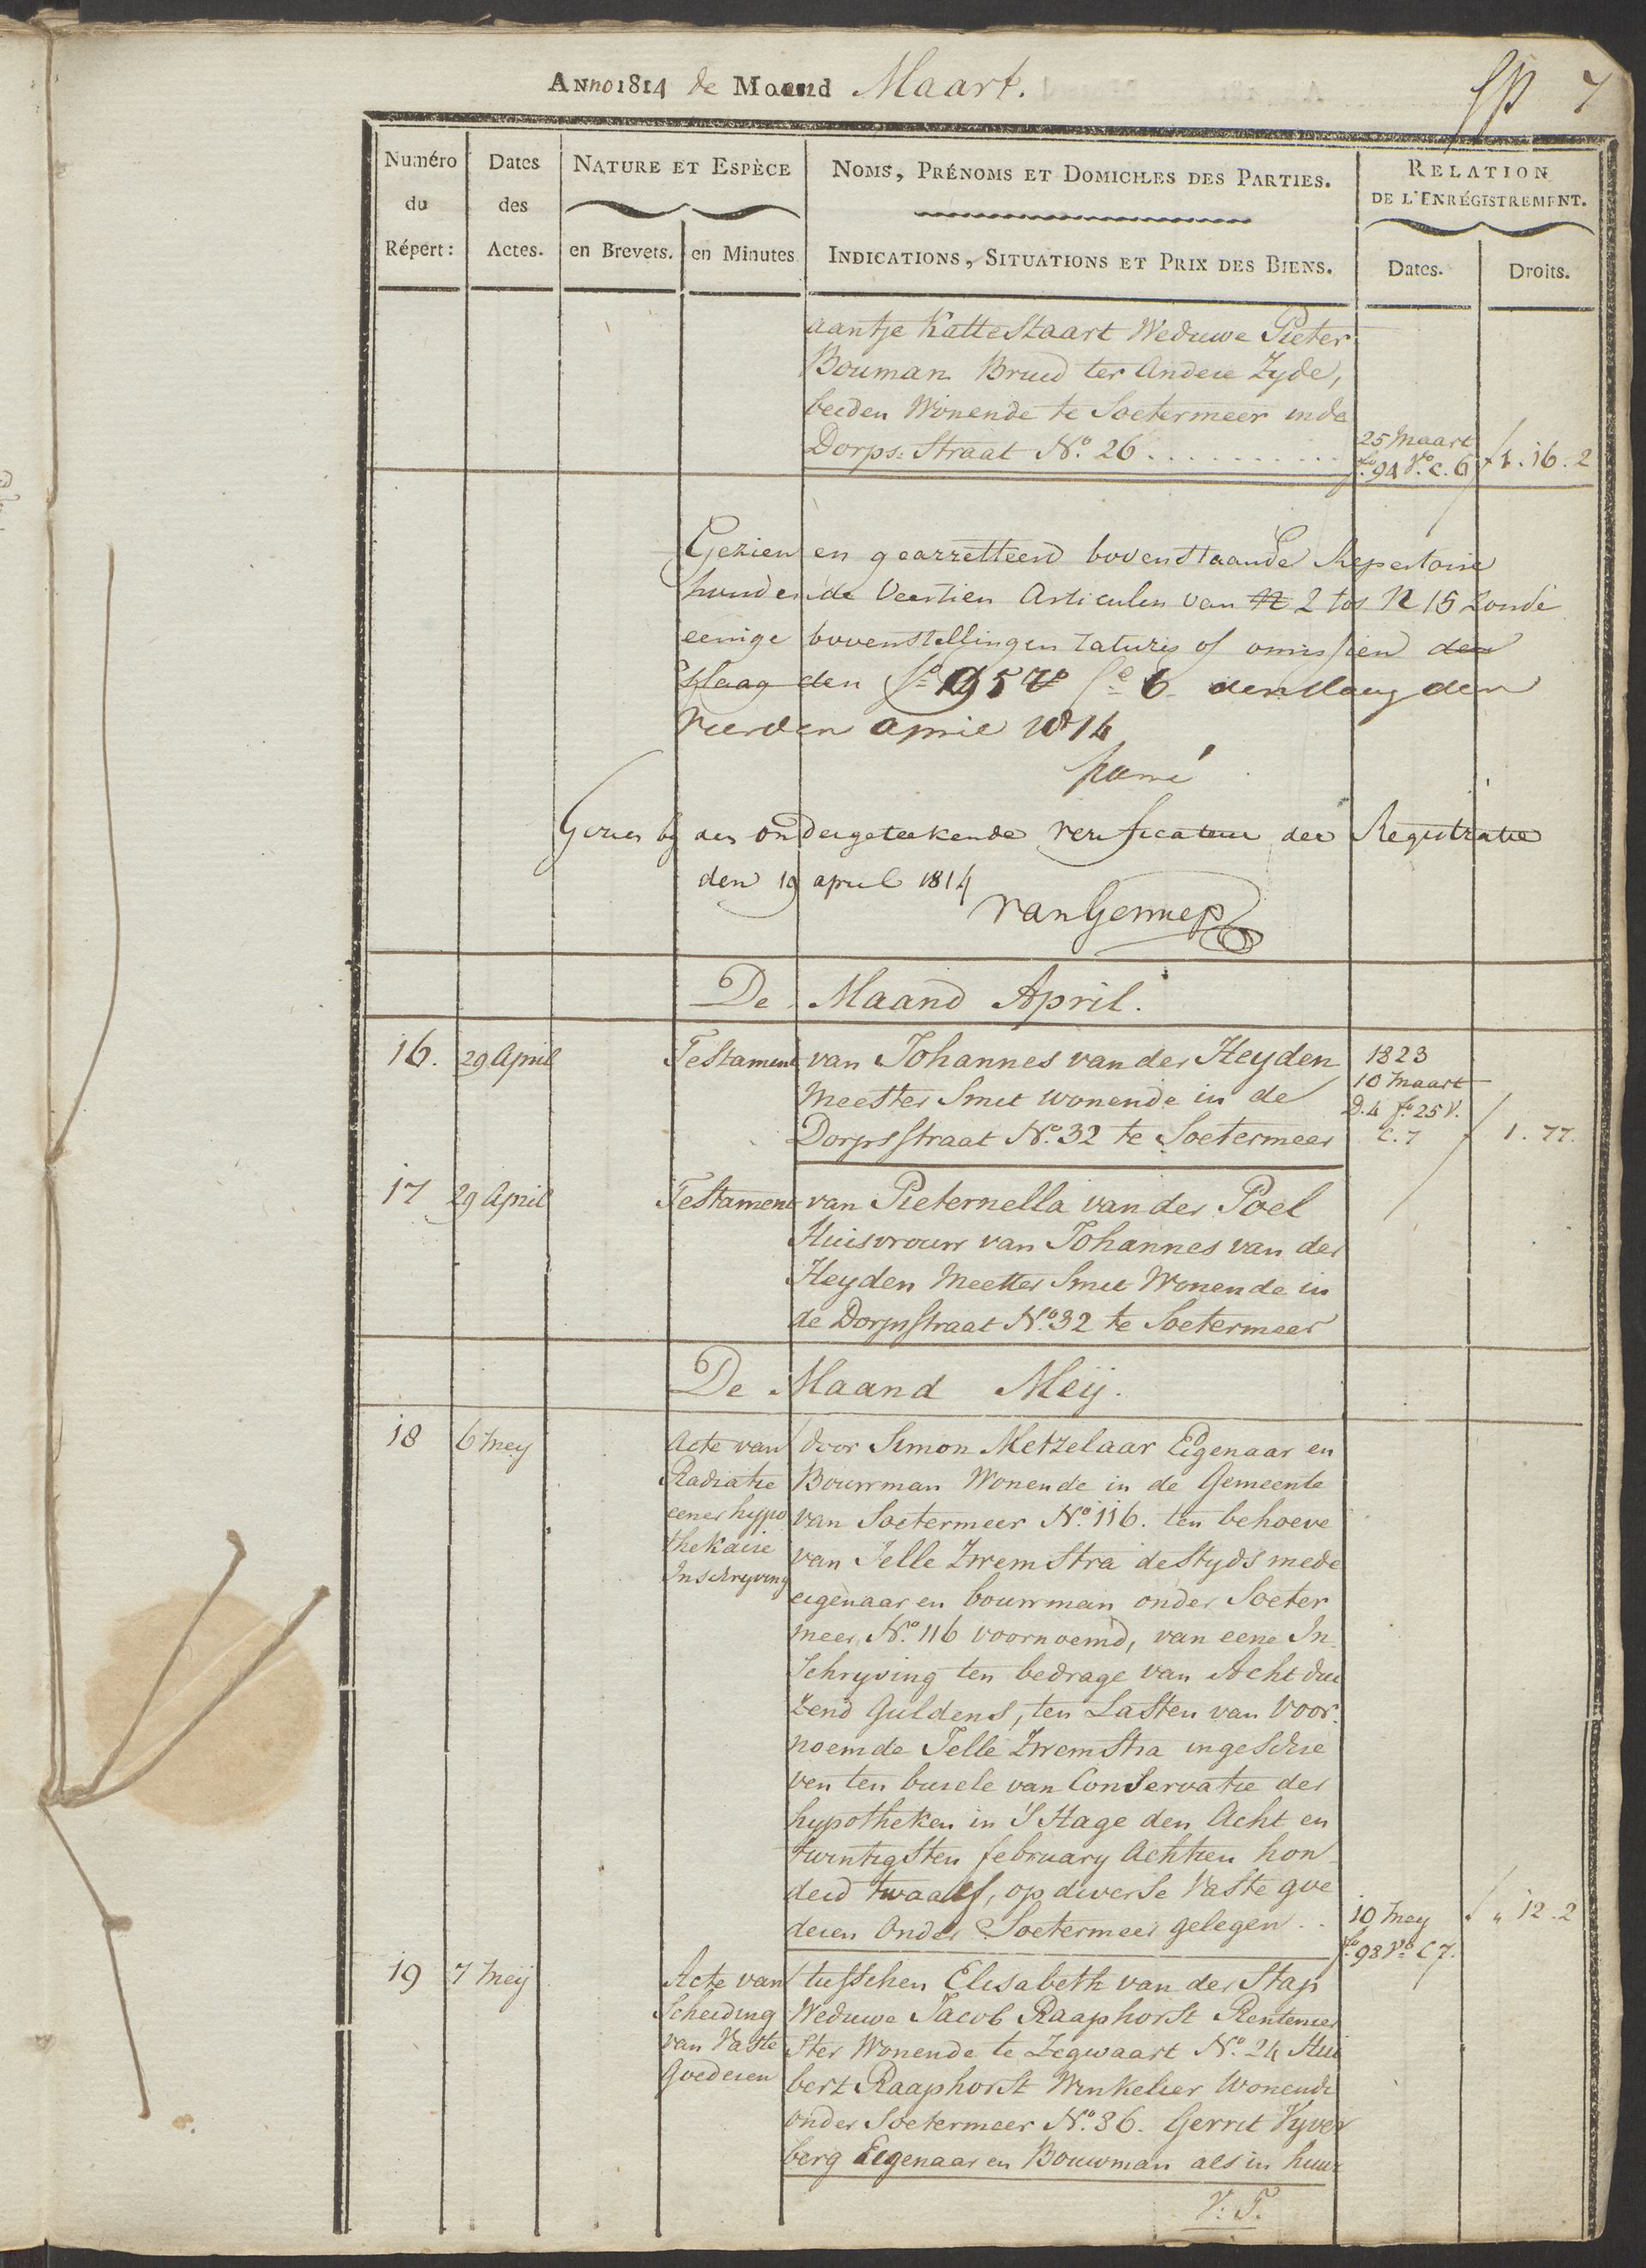 Anno 1814 de Maand Maart.
7
Numéro du Répert:
Dates des Actes.
NATURE ET ESPÈCE
en Brevets.
en Minutes
NOMS, PRÉNOMS ET DOMICILES DES PARTIES.
INDICATIONS, SITUATIONS ET PRIX DES BIENS.
RELATION
DE L'ENRÉGISTREMENT.
Dates.
Droits.
aantje KatteStaart Weduwe Pieter
Bouman Bruid ter Andere Zyde,
beiden Wonende te Soetermeer inde
Dorps-Straat No. 26 . . . . . . . . . .
25 Maart
fo. 94 Vo. C. 6
f 1. 16. 2
Gezien en gearretteerd bovenstaande Repertoire
houdende Veertien Articulen van N 2 tot N 15 zonde
eenige bovenstellingen raturis of omissien den
Haag den fo 95 Vo Ce 6 den Haag den
vierden april 1814
Gezien by den ondergeteekende verificateur der Registratie
den 19 april 1814
van Gennep
De Maand April.
16. 29 April Testament van Johannes van der Heyden
Meester Smit wonende in de
Dorpsstraat No. 32 te Soetermeer
1823
10 Maart
D. 4 fo. 25 V.
C. 7
f 1. 77.
17 29 April Testament van Pieternella van der Poel
Huisvrouw van Johannes van der
Heyden Meester Smit Wonende in
de Dorpsstraat No. 32 te Soetermeer
De Maand Meij.
18 6 Mey Acte van door Simon Metzelaar Eigenaar en
Radiatie Bouwman Wonende in de Gemeente
eener hypo van Soetermeer No. 116. ten behoeve
thekaire van Jelle Zwemstra destyds mede
Inschryving eigenaar en bouwman onder Soeter
meer, No. 116 voornoemd, van eene In-
schryving ten bedrage van Acht dui
zend Guldens, ten Lasten van Voor-
noemde Jelle Zwemstra ingeschre
ven ten burele van Conservatie der
hypotheken in 'S Hage den Acht en
twintigsten february Achtien hon-
derd twaalf, op diverse Vaste goe
deren Onder Soetermeer gelegen . .
10 Mey
fo. 98 Vo. C 7.
f „ 12. 2
19 7 Meij Acte van tusschen Elisabeth van der Stap
Scheiding Weduwe Jacob Raaphorst Rentenier
van Vaste ster Wonende te Zegwaart No. 24 Hui
Goederen bert Raaphorst Winkelier Wonende
onder Soetermeer No. 36. Gerrit Vyver
berg Eigenaar en Bouwman als in huur
V. T.